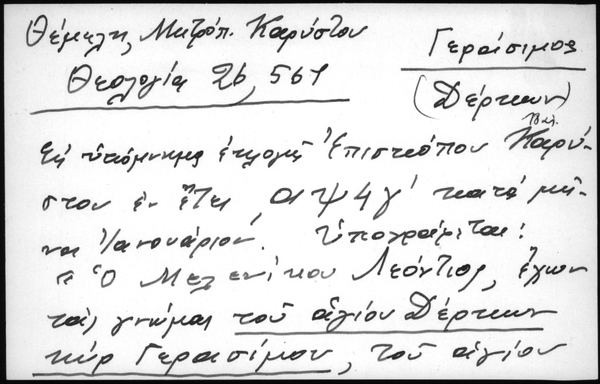 Θέμελη, Μητρόπ. Καρύστου
Θεολογία 26, 561
Γεράσιμος
(Δέρκων)
Εἰς ὑπόμνημα ἐκλογῆς Ἐπισκόπου Καρύ-
στου ἐν ἔτει ͵αψ4γ' κατά μῆ-
να Ἰανουάριον. Ὑπογράφεται:
"Ὁ Μελενίκου Λεόντιος, ἔχων
τάς γνώμας τοῦ ἁγίου Δέρκων
κύρ Γερασίμου, τοῦ ἁγίου